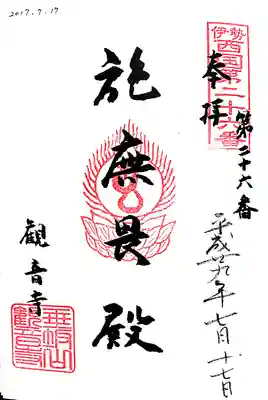 2017.7.17
伊勢
西国第二十六番
奉拝
第二十六番
平成廿九年七月十七日
施無畏殿
観音寺